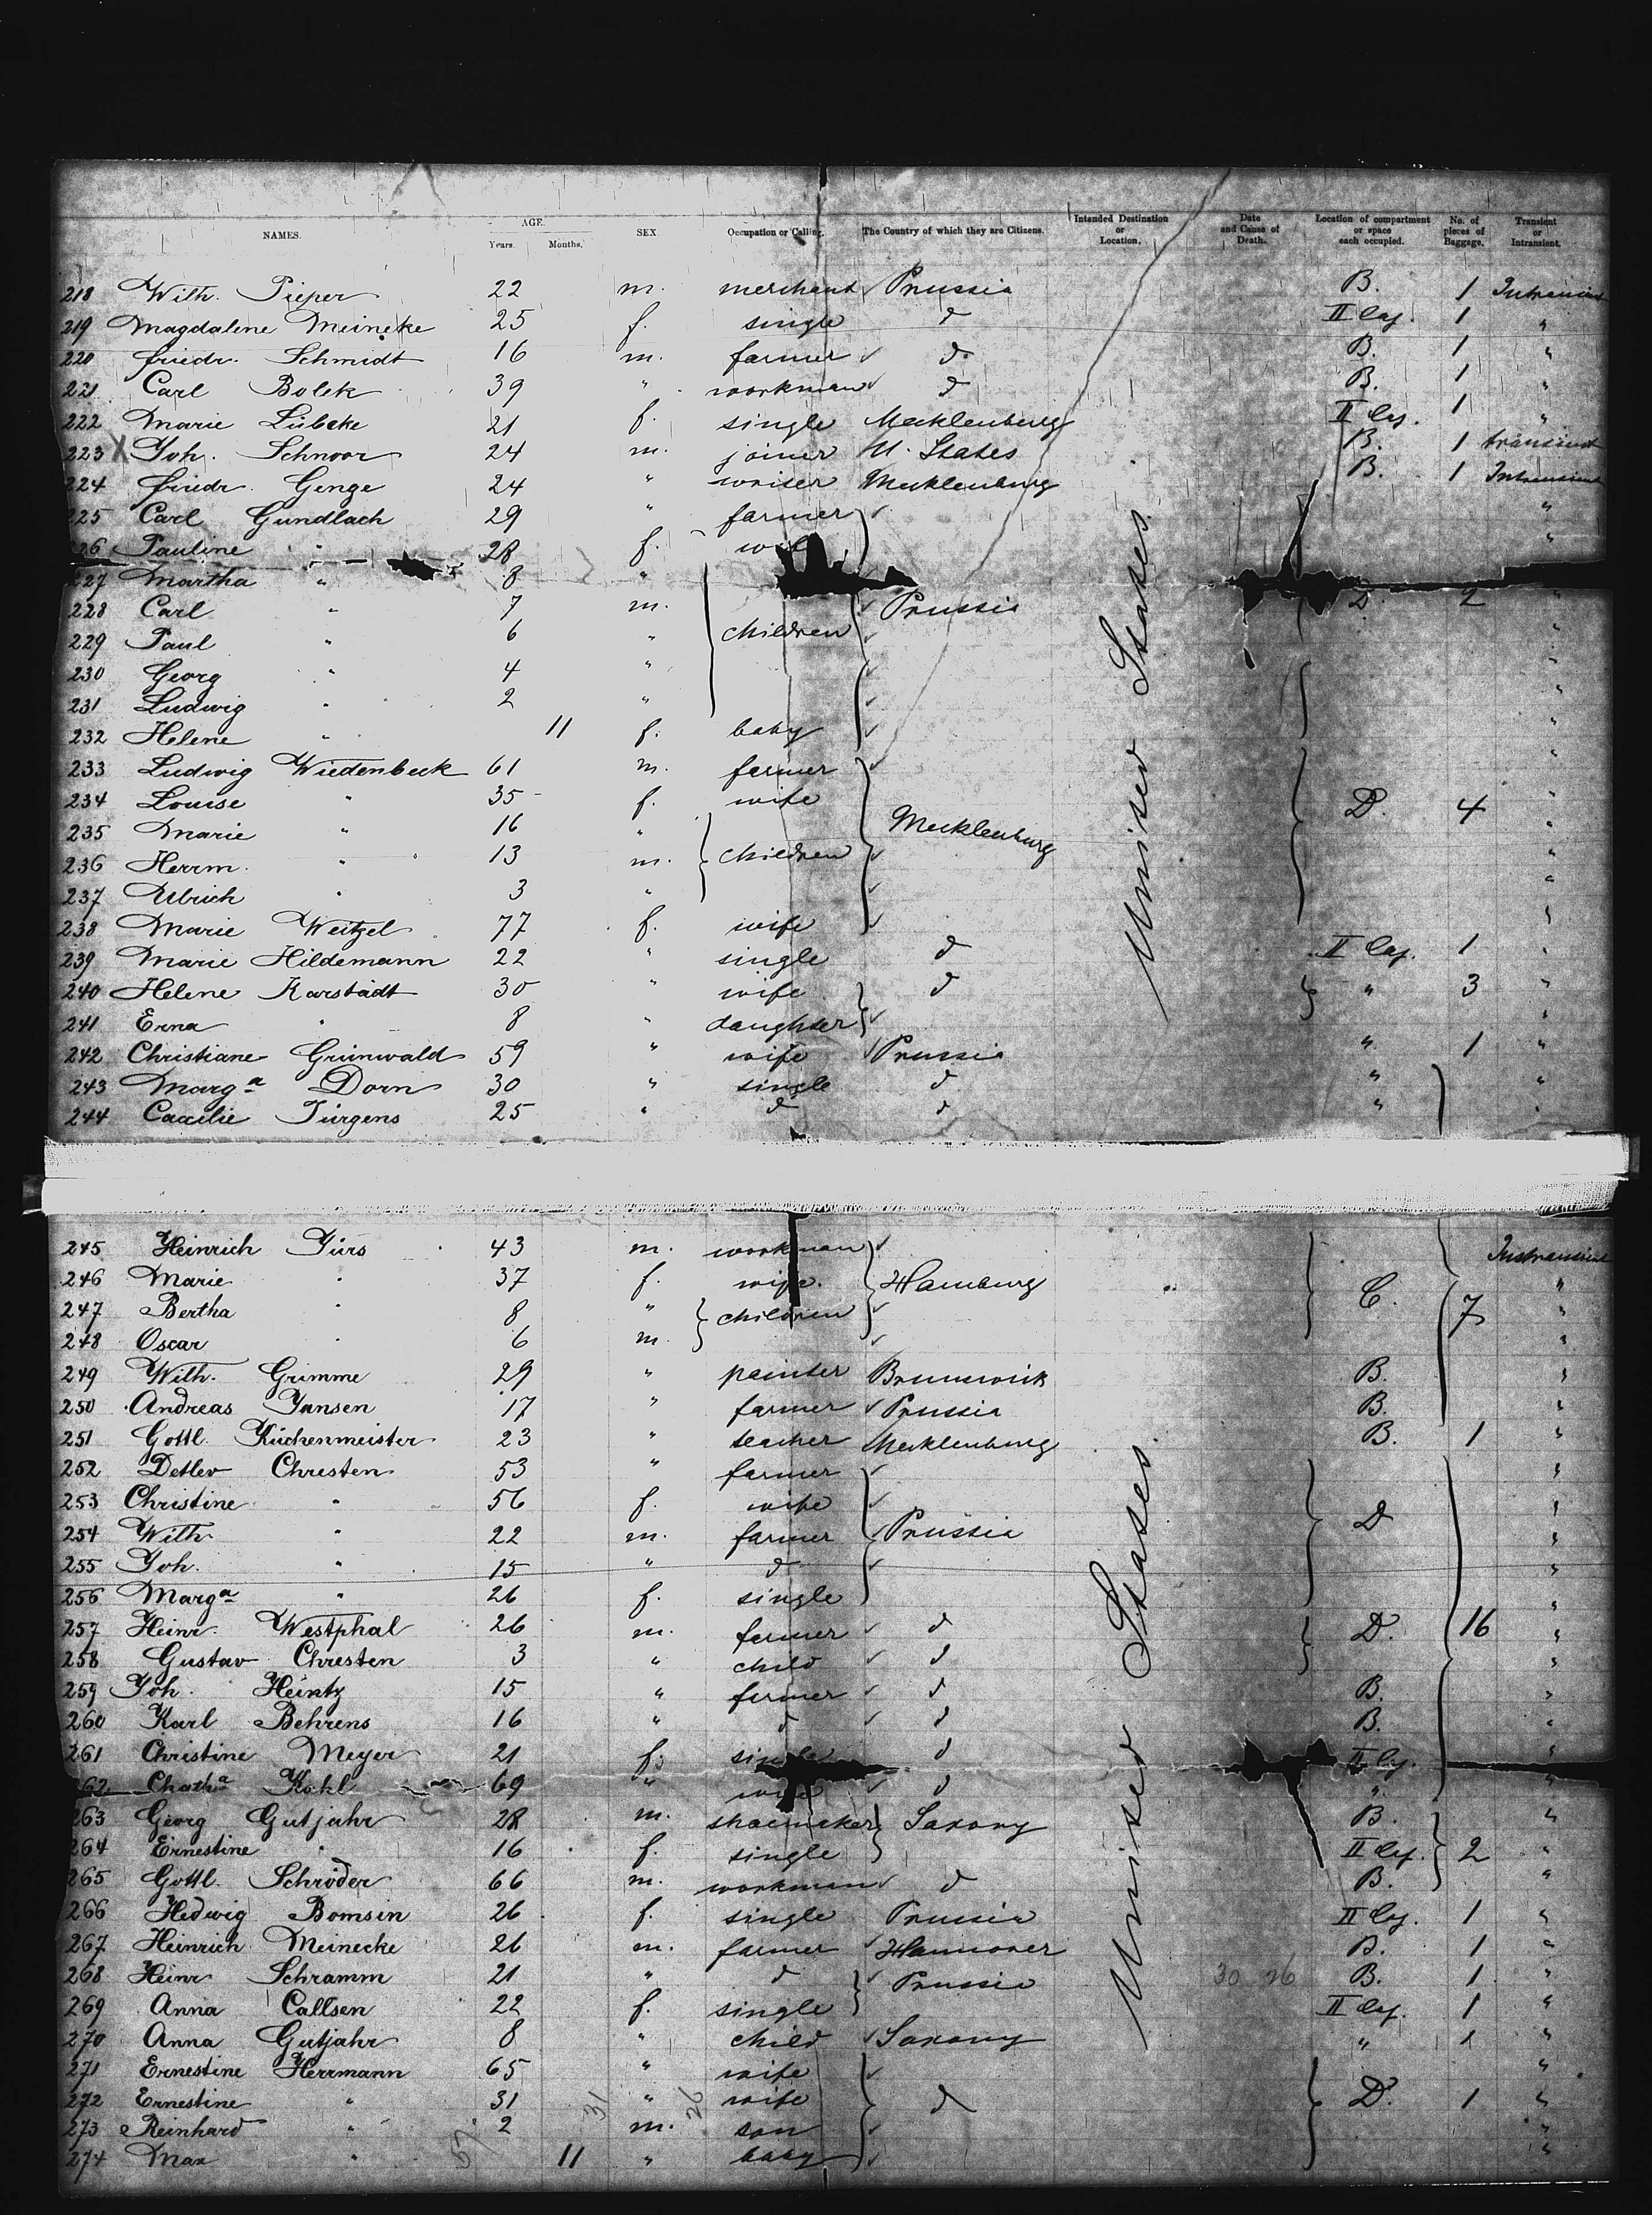 NAMES. AGE. Years. Months. SEX. Occupation or Calling. The Country of which they are Citizens. Intended Destination or Location. Date and Cause of Death. Location of compartment or space each occupied. No. of pieces of Baggage. Transient or Intransient.
218 Wilh. Pieper 22 m. merchant Prussia B. 1 Intransient
219 Magdalene Meineke 25 f. single d II Caj. 1 "
220 Friedr. Schmidt 16 m. farmer d B. 1 "
221 Carl Bolek 39 " workman d B. 1 "
222 Marie Lübcke 21 f. single Mecklenburg II Caj. 1 "
223 X Joh. Schnoor 24 m. joiner U. States B. 1 transient
224 Friedr. Genge 24 " writer Mecklenburg B. 1 Intransient
225 Carl Gundlach 29 farmer "
226 Pauline " 28 f. wife "
227 Martha " 8 "
228 Carl " 7 m. Prussia D. 2 "
229 Paul " 6 " children "
230 Georg " 4 " "
231 Ludwig " 2 " "
232 Helene " 11 f. baby "
233 Ludwig Wiedenbeck 61 m. farmer "
234 Louise " 35 f. wife D. 4 "
235 Marie " 16 " Mecklenburg "
236 Herrm. " 13 m. children "
237 Ulrich " 3 " "
238 Marie Weitzel 77 f. wife "
239 Marie Hildemann 22 " single d II Caj. 1 "
240 Helene Karstädt 30 " wife d " 3 "
241 Erna " 8 " daughter "
242 Christiane Grünwald 59 " wife Prussia " 1 "
243 Marga Dorn 30 " single d " "
244 Caecilie Jürgens 25 " d d " "
United States
245 Heinrich Jürs 43 m. workman Intransient
246 Marie " 37 f. wife. Hamburg C. "
247 Bertha " 8 " children 7 "
248 Oscar " 6 m. "
249 Wilh. Grimme 29 " painter Brunswick B. "
250 Andreas Jansen 17 " farmer Prussia B. "
251 Gottl. Küchenmeister 23 " teacher Mecklenburg B. 1 "
252 Detlev Chresten 53 " farmer "
253 Christine " 56 f. wife "
254 Wilh. " 22 m. farmer Prussia D "
255 Joh. " 15 " d "
256 Marga " 26 f. single "
257 Heinr. Westphal 26 m. farmer d D. 16 "
258 Gustav Chresten 3 " child d "
259 Joh. Heintz 15 " farmer d B. "
260 Karl Behrens 16 " d d B. "
261 Christine Meyer 21 f. single d II Caj. "
262 Catha Kohl 69 " wife d " "
263 Georg Gutjahr 28 m. shoemaker Saxony B. "
264 Ernestine " 16 f. single II Caj. 2 "
265 Gottl. Schröder 66 m. workman d B. "
266 Hedwig Bomsin 26 f. single Prussia II Caj. 1 "
267 Heinrich Meinecke 26 m. farmer Hannover B. 1 "
268 Heinr Schramm 21 " d Prussia 30 26 B. 1 "
269 Anna Callsen 22 f. single II Caj. 1 "
270 Anna Gutjahr 8 " child Saxony " 1 "
271 Ernestine Herrmann 65 " wife "
272 Ernestine " 31 " wife d D. 1 "
273 Reinhard " 2 m. son "
274 Max " 11 " baby "
57 31 26
United States